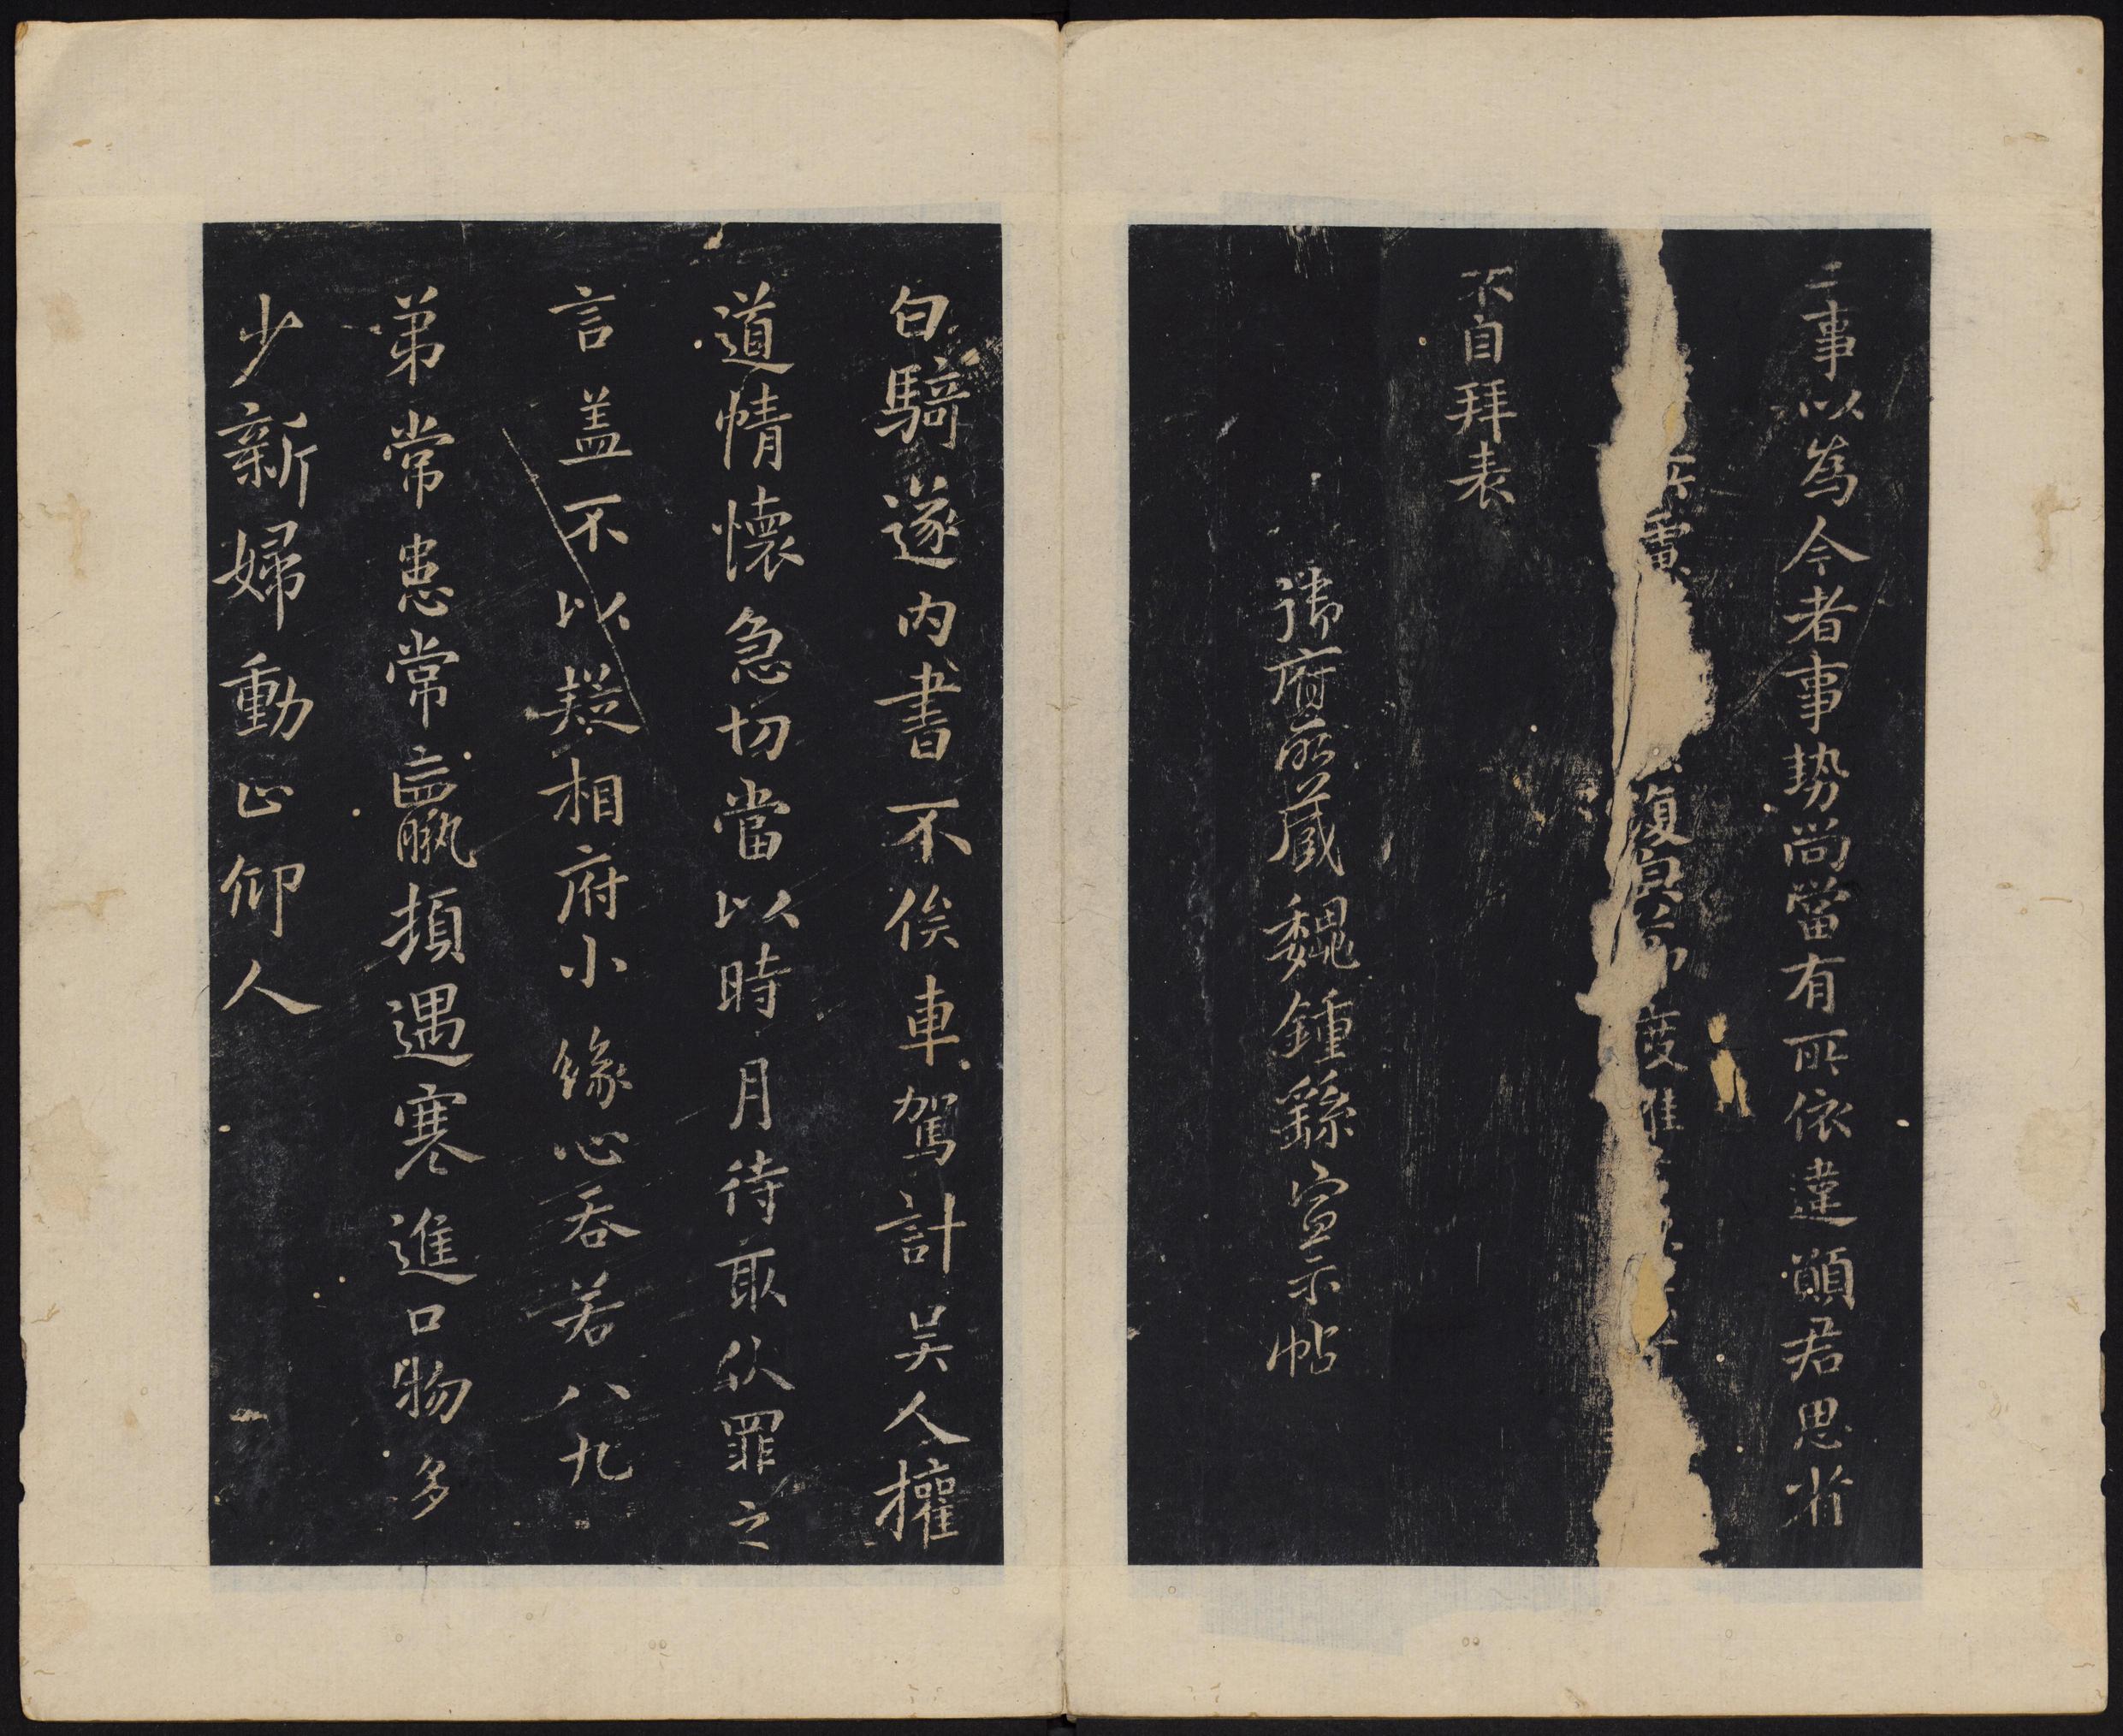 二事以為今者事勢尚當有所依違願君思省
慮復皃節度唯
不自拜表
御府所蔵魏鍾繇宣示帖
白騎遂内書不俟車駕計吴人權
道情懷急切當以時月待取伏罪之
言盖不以疑相府小緣心吞若八九
弟常患常羸頓遇寒進口物多
少新婦動止仰人